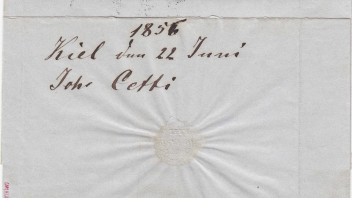 1856
Kiel den 22 Juni
Johs Cetti